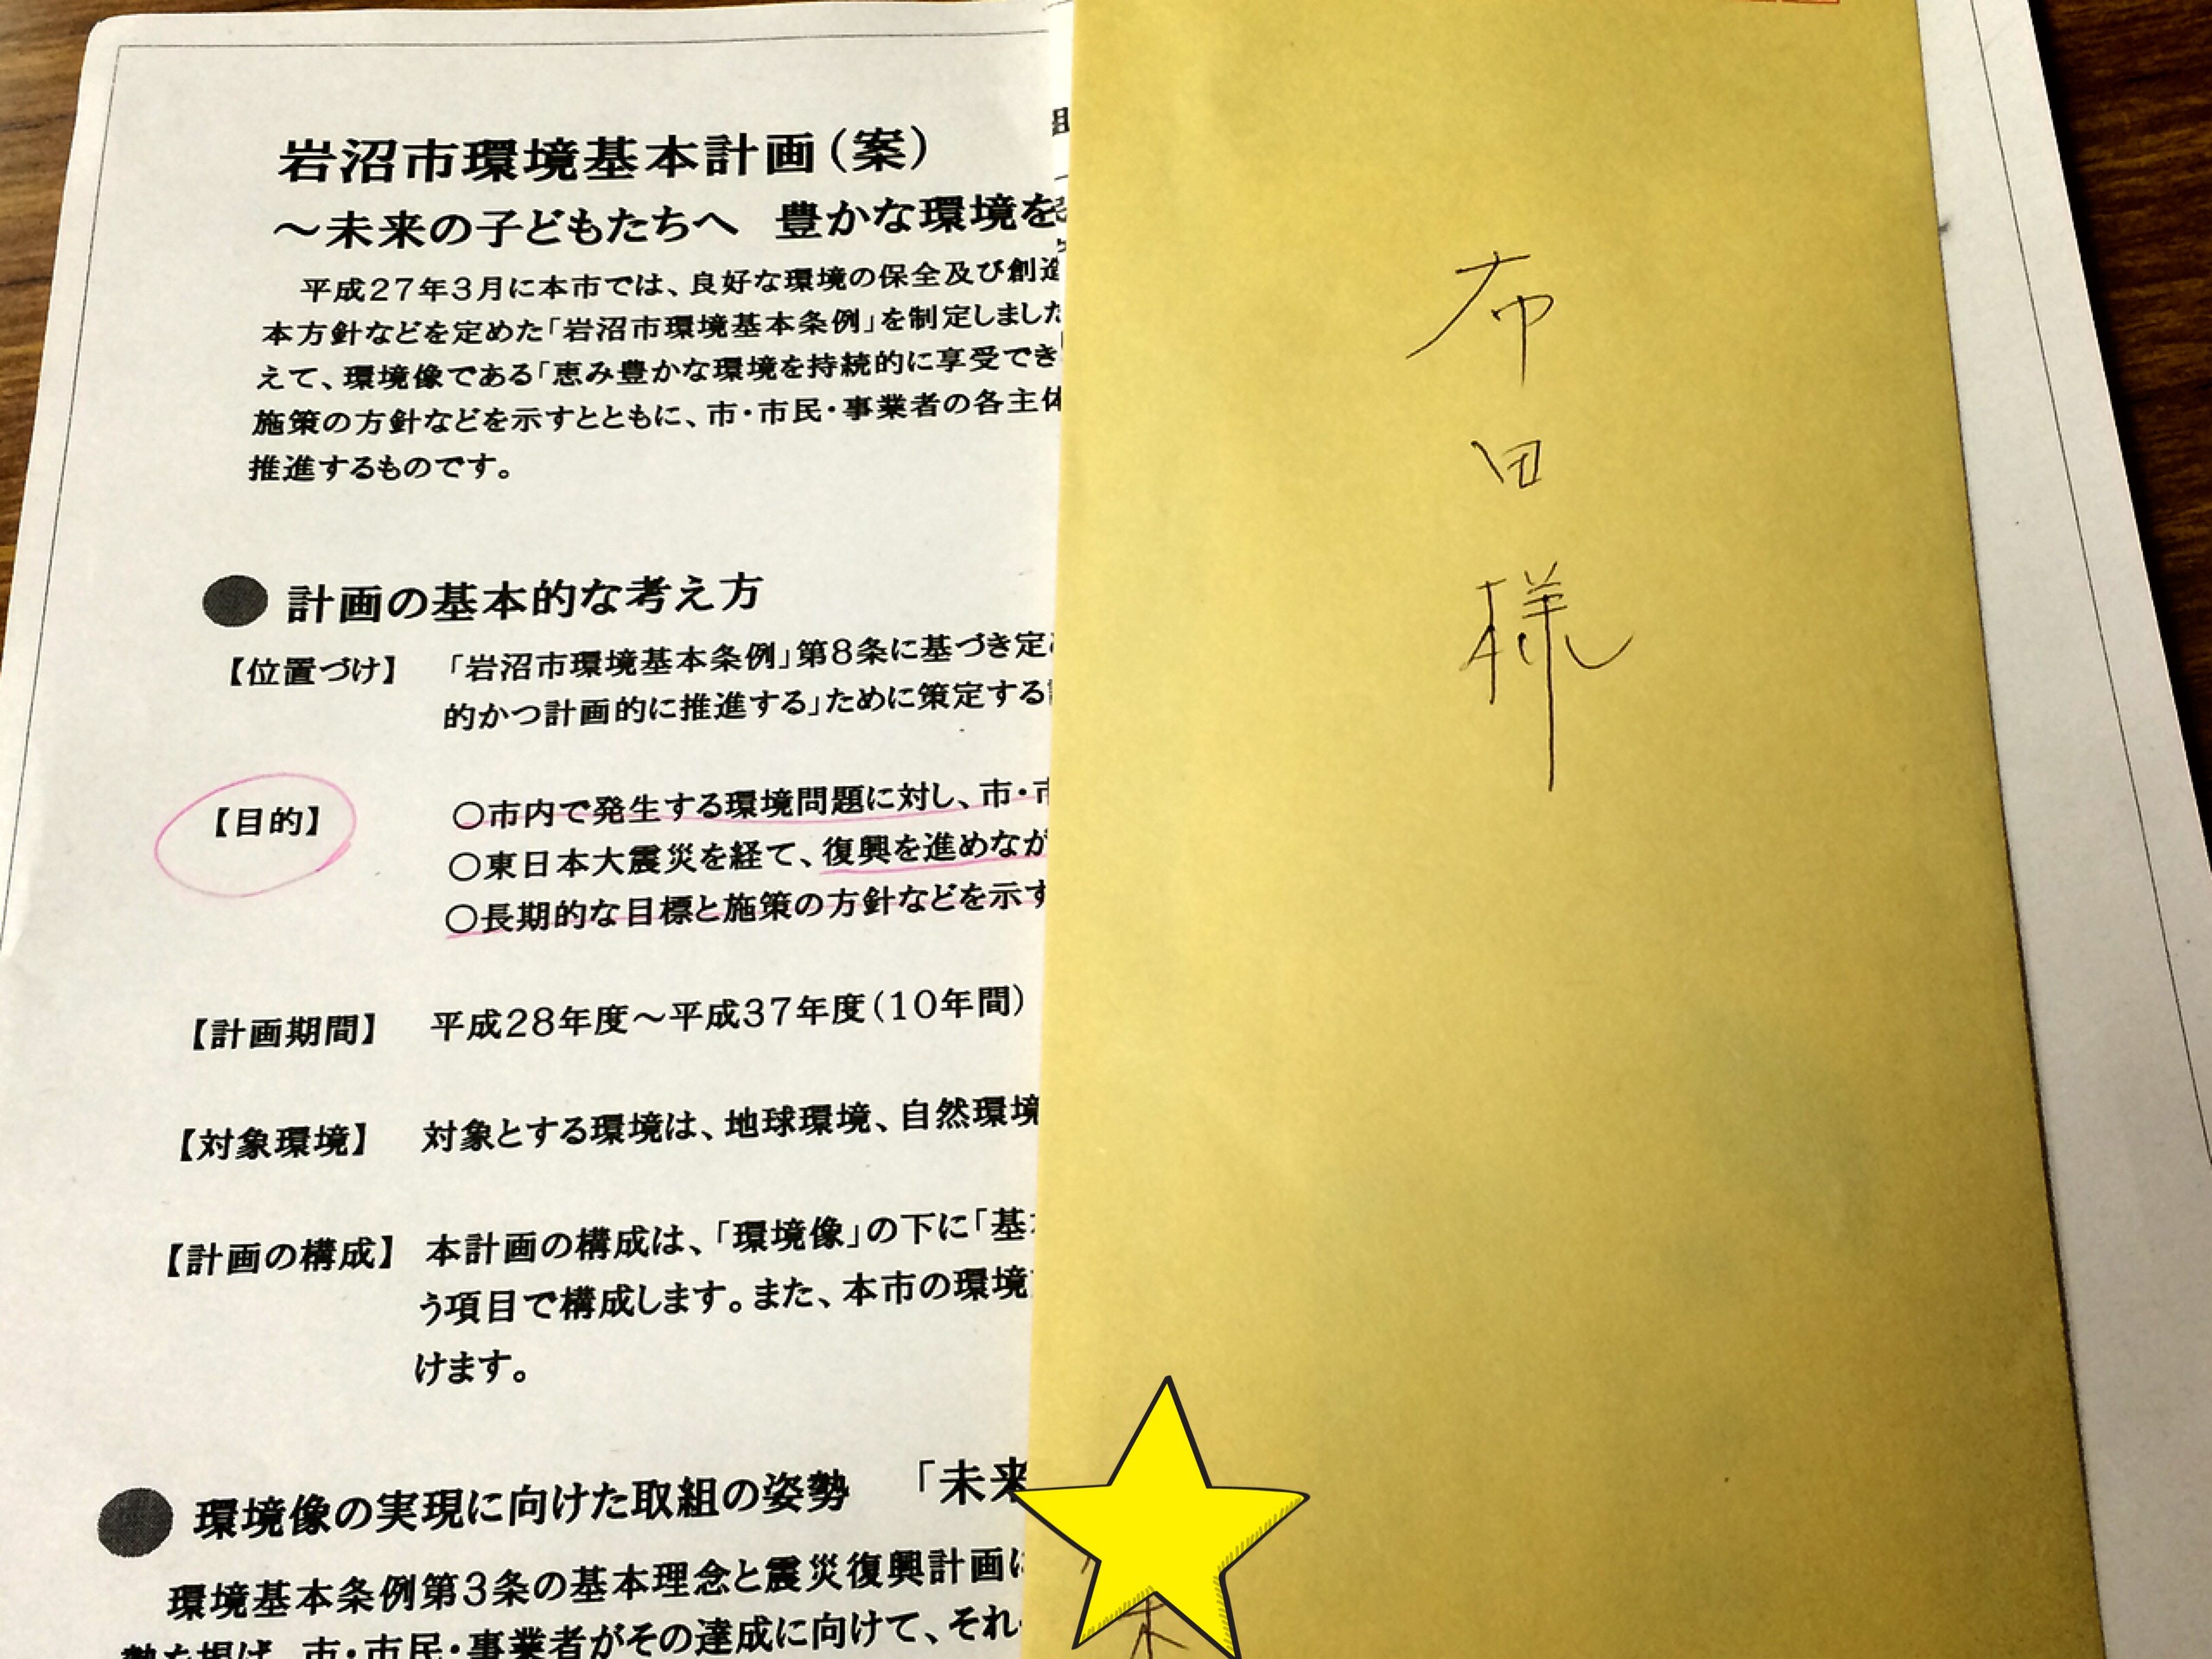 岩沼市環境基本計画（案）
～未来の子どもたちへ 豊かな環境を
平成27年3月に本市では、良好な環境の保全及び創造
本方針などを定めた「岩沼市環境基本条例」を制定しました
えて、環境像である「恵み豊かな環境を持続的に享受でき
施策の方針などを示すとともに、市・市民・事業者の各主体
推進するものです。
●計画の基本的な考え方
【位置づけ】 「岩沼市環境基本条例」第8条に基づき定
的かつ計画的に推進する」ために策定する
【目的】 ○市内で発生する環境問題に対し、市・市
○東日本大震災を経て、復興を進めなが
○長期的な目標と施策の方針などを示す
【計画期間】 平成28年度～平成37年度（10年間）
【対象環境】 対象とする環境は、地球環境、自然環境
【計画の構成】 本計画の構成は、「環境像」の下に「基
う項目で構成します。また、本市の環境
けます。
●環境像の実現に向けた取組の姿勢 「未来
環境基本条例第3条の基本理念と震災復興計画に
勢を掲げ、市・市民・事業者がその達成に向けて、それ
布田様